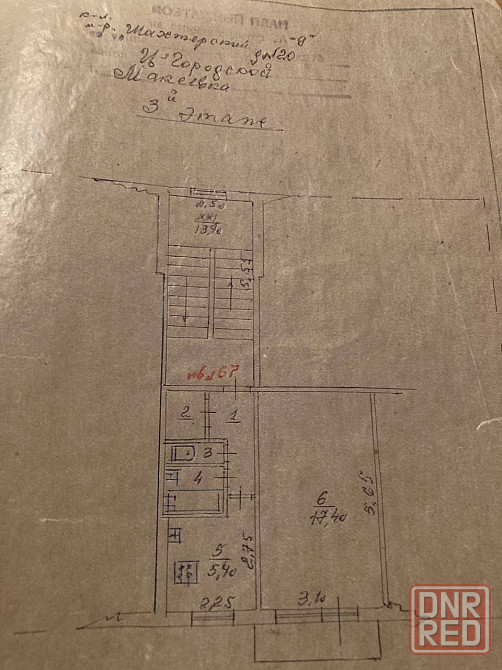 м-р. Шахтерский д №20
Ц-Городской
Макеевка
3й этаж
2,50
XXI
13,90
5,53
кв № 67
2
1
3
4
6
17,40
5,65
5
5,40
2,75
2,25
3,10
DNR
RED